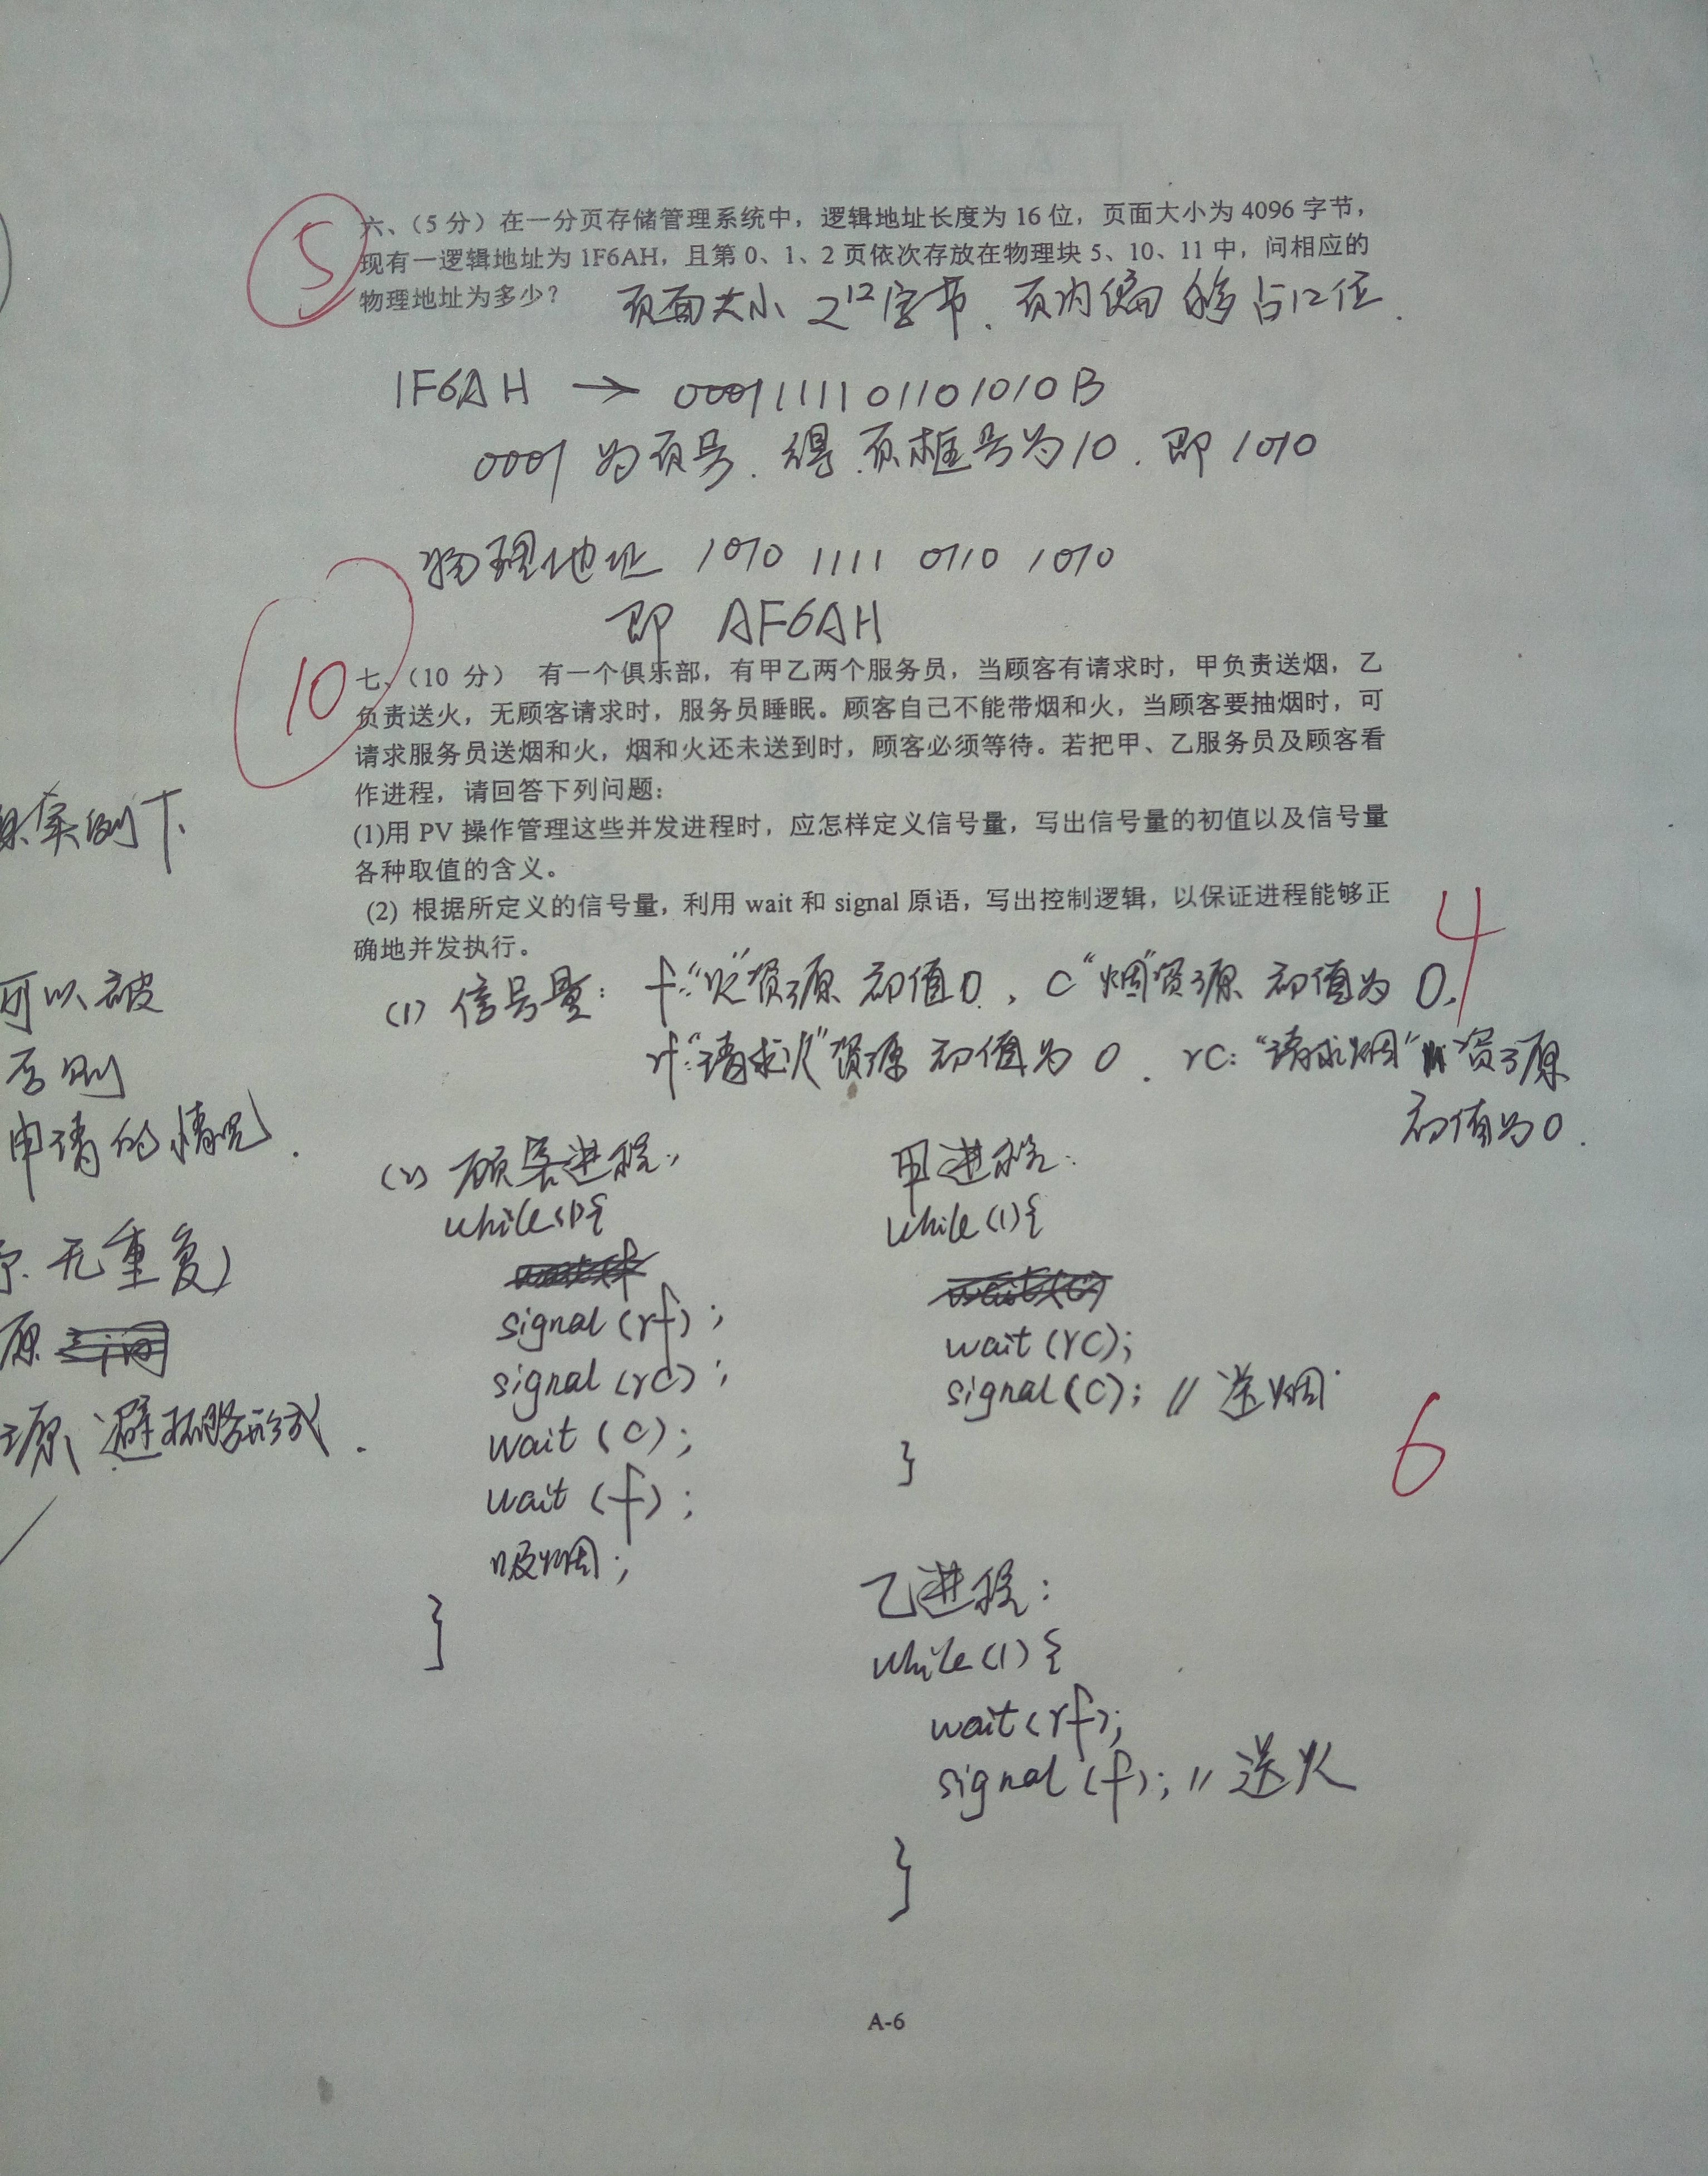 5
六、（5 分）在一分页存储管理系统中，逻辑地址长度为 16 位，页面大小为 4096 字节，
现有一逻辑地址为 1F6AH，且第 0、1、2 页依次存放在物理块 5、10、11 中，问相应的
物理地址为多少？ 页面大小 2^12 字节、页内偏移占12位.
1F6AH → 0001111101101010B
0001 为页号. 得 页框号为10. 即 1010
物理地址 1010 1111 0110 1010
即 AF6AH
10
七、（10 分） 有一个俱乐部，有甲乙两个服务员，当顾客有请求时，甲负责送烟，乙
负责送火，无顾客请求时，服务员睡眠。顾客自己不能带烟和火，当顾客要抽烟时，可
请求服务员送烟和火，烟和火还未送到时，顾客必须等待。若把甲、乙服务员及顾客看
作进程，请回答下列问题：
(1)用 PV 操作管理这些并发进程时，应怎样定义信号量，写出信号量的初值以及信号量
各种取值的含义。
(2) 根据所定义的信号量，利用 wait 和 signal 原语，写出控制逻辑，以保证进程能够正
确地并发执行。
4
(1) 信号量: f:“火”资源 初值0. , C“烟”资源 初值为 0.
rf:“请求火”资源 初值为 0 . rc:“请求烟”资源
初值为0.
(2) 顾客进程:
while(1){
signal(rf);
signal(rc);
wait(c);
wait(f);
吸烟;
}
甲进程:
while(1){
wait(rc);
signal(c); // 送烟
}
6
乙进程:
while(1){
wait(rf);
signal(f); // 送火
}
可以被
否则
申请的情况.
无重复)
A-6